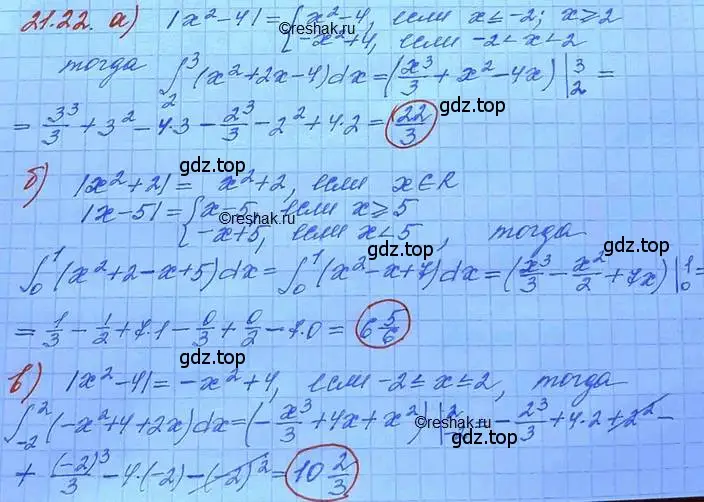 21.22. а) |x²-4| = { x²-4, если x ≤ -2; x ≥ 2
-x²+4, если -2 < x < 2
©reshak.ru
тогда ∫₂³ (x²+2x-4)dx = (x³/3 + x² - 4x) |₂³ =
= 3³/3 + 3² - 4·3 - 2³/3 - 2² + 4·2 = 22/3
gdz.top gdz.top
б) |x²+2| = x²+2, если x ∈ R
gdz.top
|x-5| = { x-5, если x ≥ 5
-x+5, если x < 5, тогда
©reshak.ru
gdz.top
∫₀¹ (x²+2-x+5)dx = ∫₀¹ (x²-x+7)dx = (x³/3 - x²/2 + 7x) |₀¹ =
= 1/3 - 1/2 + 7·1 - 0/3 + 0/2 - 7·0 = 6 5/6
gdz.top gdz.top
в) |x²-4| = -x²+4, если -2 ≤ x ≤ 2, тогда
∫₋₂² (-x²+4+2x)dx = (-x³/3 + 4x + x²) |₋₂² = -2³/3 + 4·2 + 2² -
©reshak.ru
+ (-2)³/3 - 4·(-2) - (-2)² = 10 2/3
gdz.top gdz.top